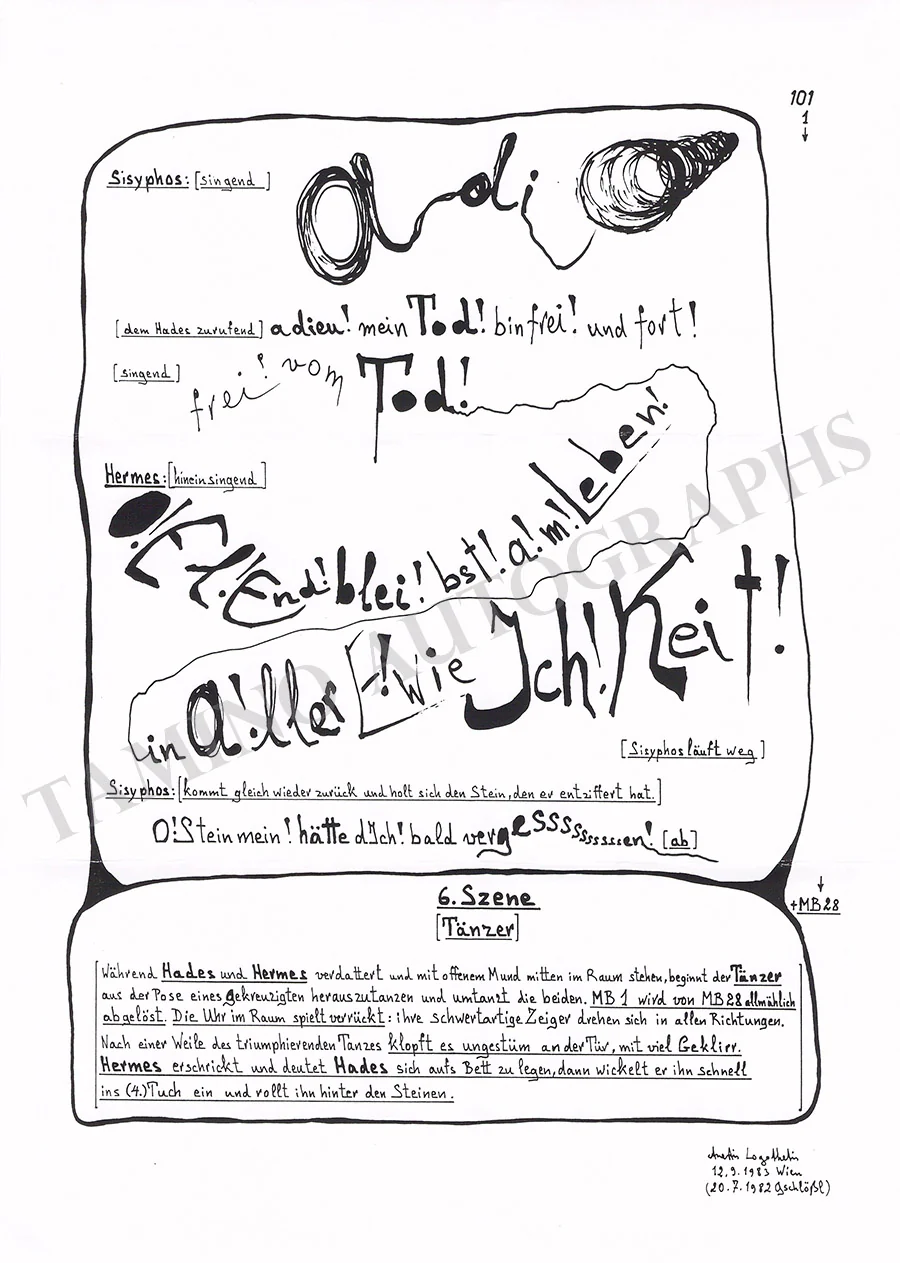 101
1
↓
Sisyphos: [singend ]
adi
[dem Hades zurufend] adieu! mein Tod! bin frei! und fort!
[singend] frei! vom Tod!
Hermes: [hineinsingend]
O!El!End!blei!bst!a!m!Leben!
in A!ller !wie Ich!Keit!
[Sisyphos läuft weg]
Sisyphos: [kommt gleich wieder zurück und holt sich den Stein, den er entziffert hat.]
O! Stein mein! hätte dIch! bald vergesssssssssssen! [ab]
↓
+MB28
6. Szene
[Tänzer]
Während Hades und Hermes verdattert und mit offenem Mund mitten im Raum stehen, beginnt der Tänzer
aus der Pose eines Gekreuzigten herauszutanzen und umtanzt die beiden. MB 1 wird von MB 28 allmählich
abgelöst. Die Uhr im Raum spielt verrückt: ihre schwertartige Zeiger drehen sich in allen Richtungen.
Nach einer Weile des triumphierenden Tanzes klopft es ungestüm an der Tür, mit viel Geklirr.
Hermes erschrickt und deutet Hades sich aufs Bett zu legen, dann wickelt er ihn schnell
ins (4.) Tuch ein und rollt ihn hinter den Steinen.
Anestis Logothetis
12.9.1983 Wien
(20.7.1982 Gschlößl)
TAMINO AUTOGRAPHS